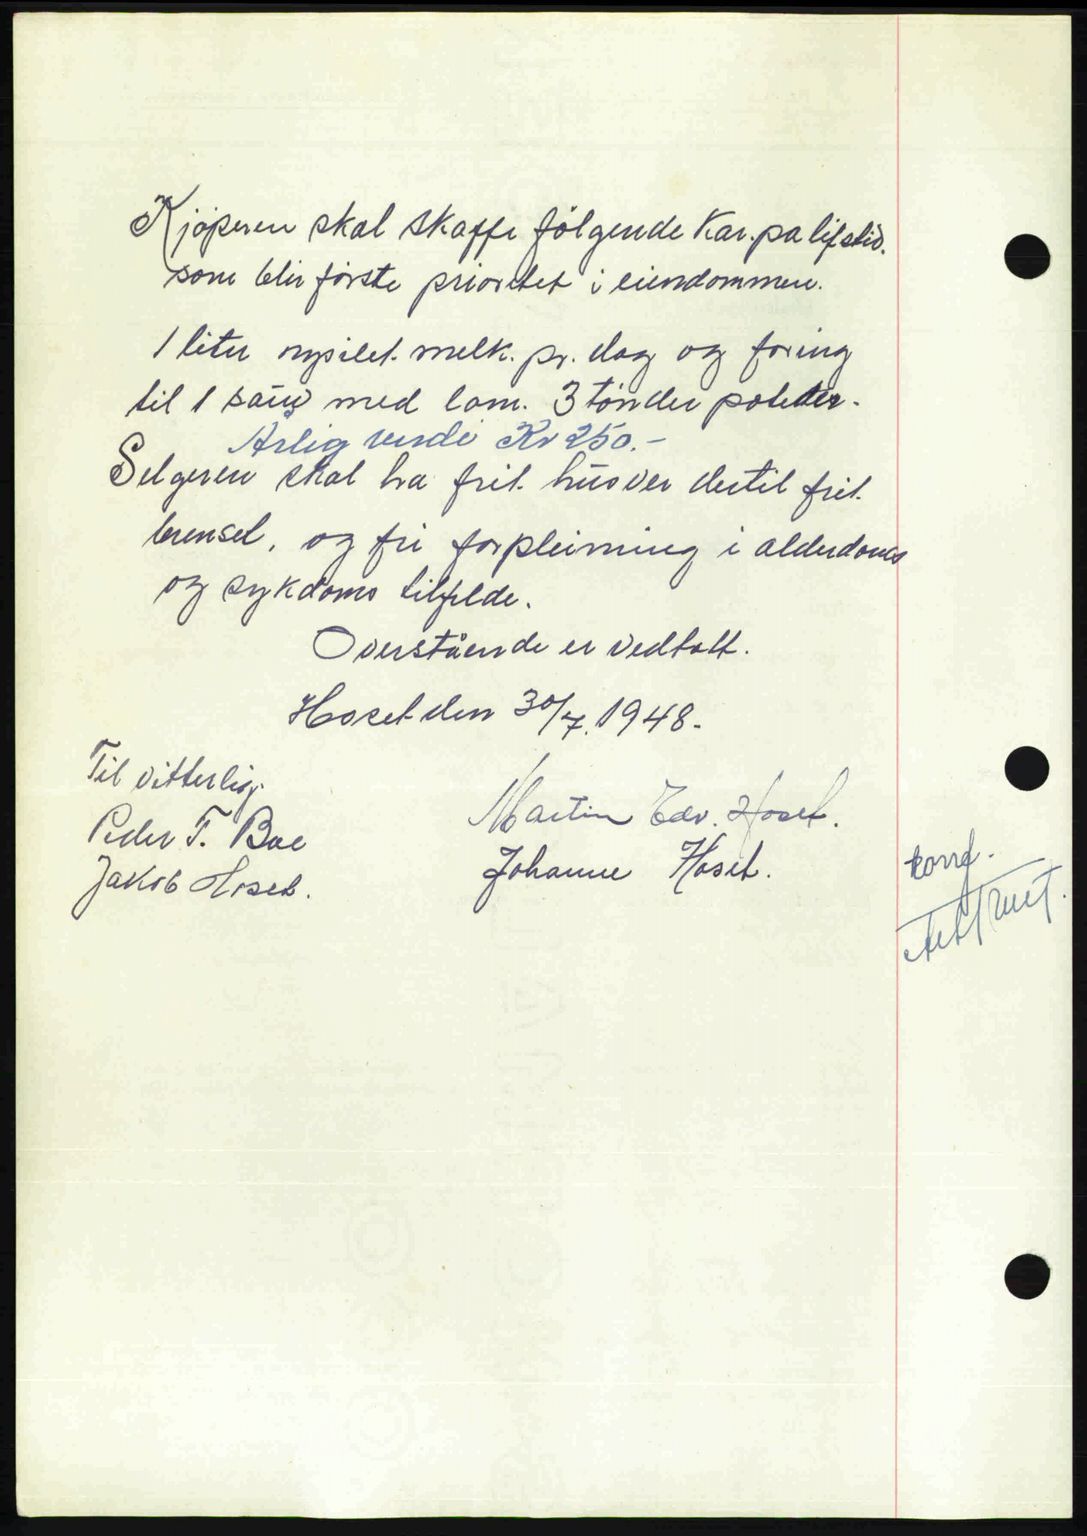 Kjöperen skal skaffe følgende Kår. på lifstid.
som blir förste prioritet i eiendommen.
1 liter nysilet. melk. pr. dag og foring
til 1 sau med lam. 3 tönder poteter.
Årlig verdi Kr 250.-
Selgeren skal ha frit. husvær dertil frit.
brensel, og fri forpleining i alderdoms
og sykdoms tilfelde.
Overstående er vedtatt.
Hoset den 30/7. 1948.
Til vitterlig.
Peder T. Boe
Jakob Hoset.
Martin Edv. Hoset.
Johanne Hoset.
konf.